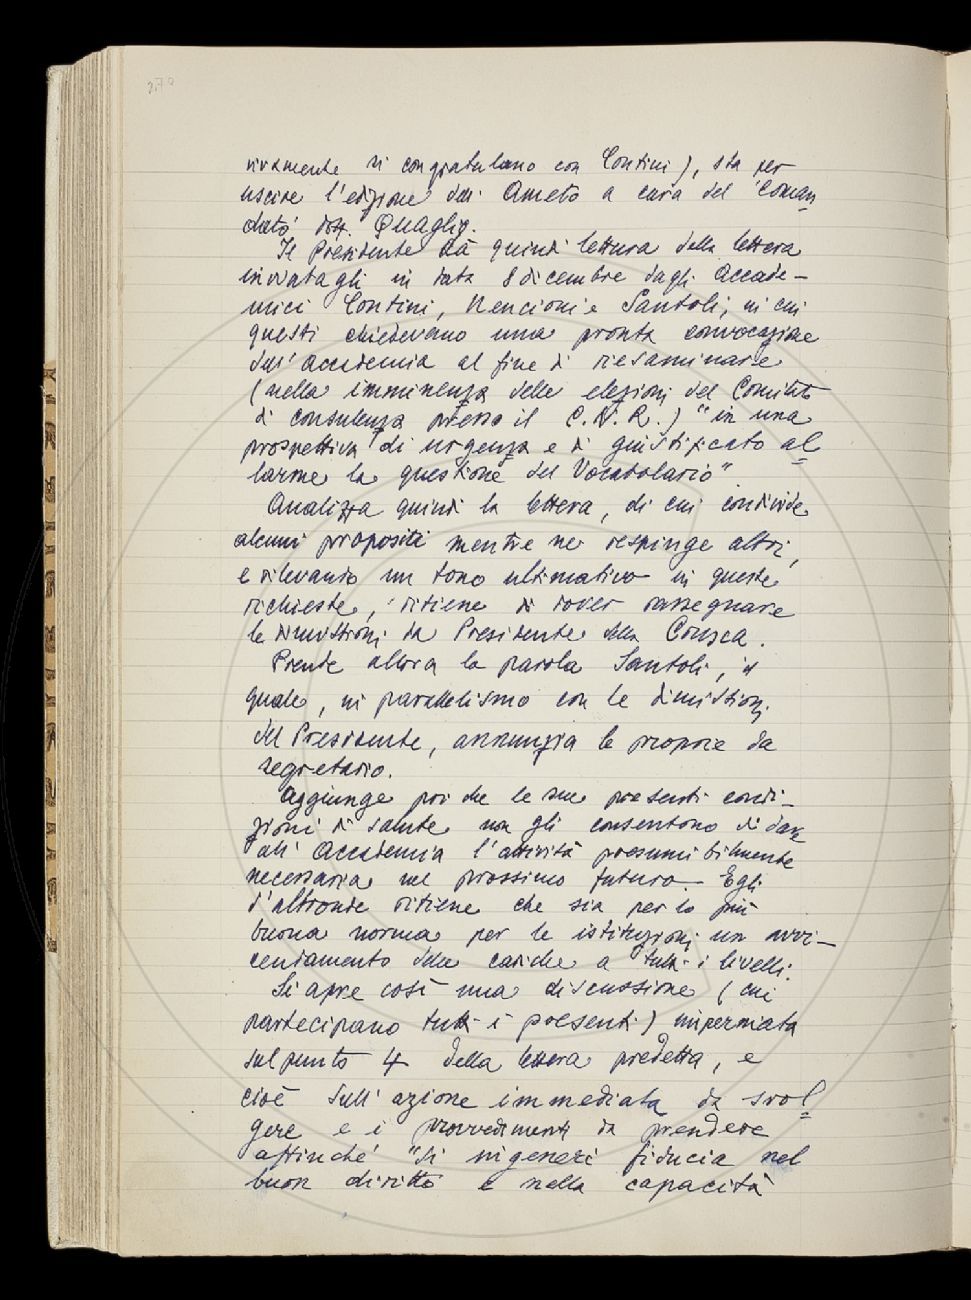 vivamente si congratulano con Contini), sta per
uscire l'edizione dell'Ameto a cura del "coman
dato" dott. Quaglio.
Il Presidente dà quindi lettura della lettera
inviatagli in data 8 dicembre dagli Accade-
mici Contini, Nencioni e Santoli, in cui
questi chiedevano una pronta convocazione
dell'Accademia al fine di riesaminare
(nella imminenza delle elezioni del Comitato
di consulenza presso il C.N.R.) "in una
prospettiva di urgenza e di giustificato al
larme la questione del Vocabolario".
Analizza quindi la lettera, di cui condivide
alcuni propositi mentre ne respinge altri,
e rilevando un tono ultimativo in queste
richieste, ritiene di dover rassegnare
le dimissioni da Presidente della Crusca.
Prende allora la parola Santoli, il
quale, in parallelismo con le dimissioni
del Presidente, annunzia le proprie da
segretario.
Aggiunge poi che le sue presenti condi-
zioni di salute non gli consentono di dare
all'Accademia l'attività presumibilmente
necessaria nel prossimo futuro. Egli
d'altronde ritiene che sia per lo più
buona norma per le istituzioni un avvi-
cendamento delle cariche a tutti i livelli.
Si apre così una discussione (cui
partecipano tutti i presenti) imperniata
sul punto 4 della lettera predetta, e
cioè sull'azione immediata da svol
gere e i provvedimenti da prendere
affinché "si ingeneri fiducia nel
buon diritto e nella capacità